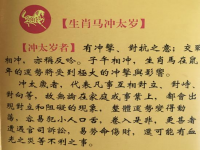 【生肖马冲太岁】
【冲太岁者】有冲擊、對抗之意；交
相冲，亦稱反吟。子午相冲，生肖馬在鼠
年的運勢將受到極大的冲擊與影響。
冲太歲者，代表凡事互相對立、對峙、
對向等，故無論在家庭或事業上，都會出
現對立和阻礙的現象，整體運勢變得動
蕩，容易犯小人口舌，眷人是非，
遭遇官司訴訟，易勞命傷財，還可能有血
光之災等不利之事。